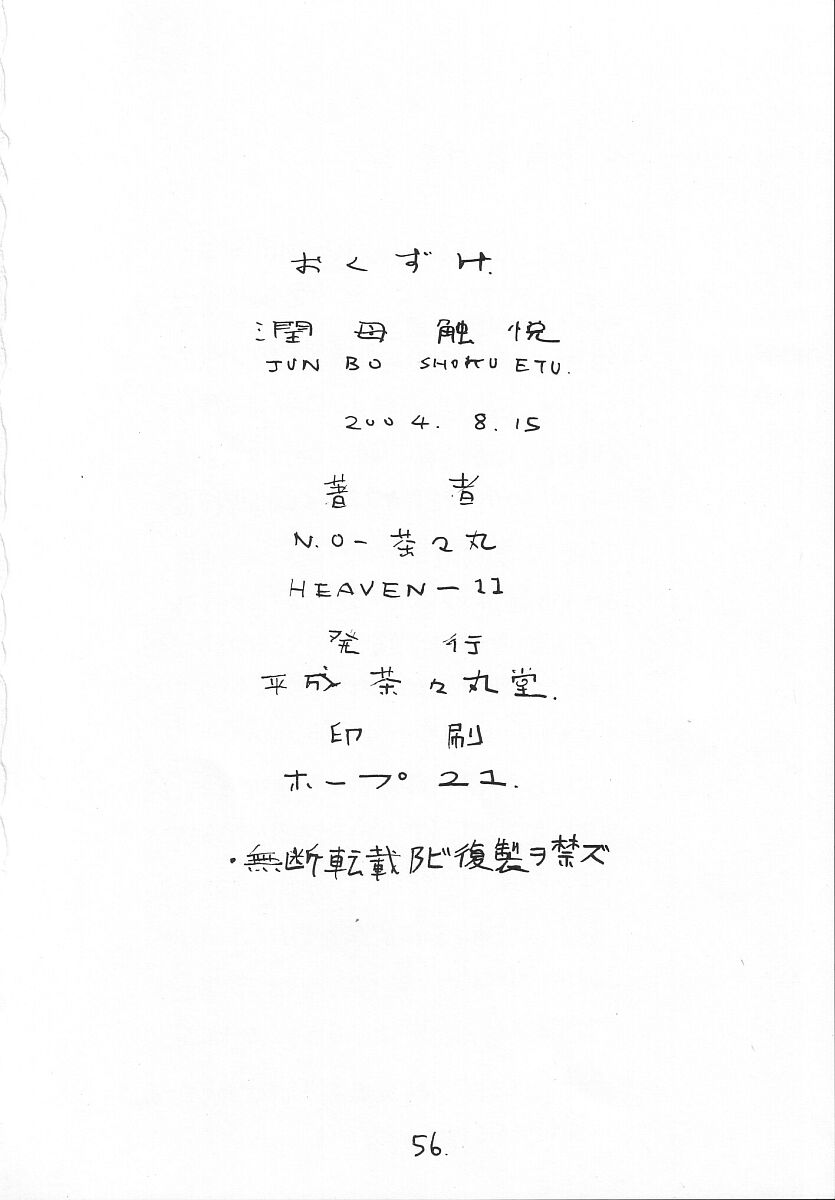 おくずけ.
潤母触悦
JUN BO SHOKU ETU.
2004. 8. 15
著者
N.O-茶々丸
HEAVEN-11
発行
平成茶々丸堂.
印刷
ホープ21.
・無断転載及ビ復製ヲ禁ズ
56.